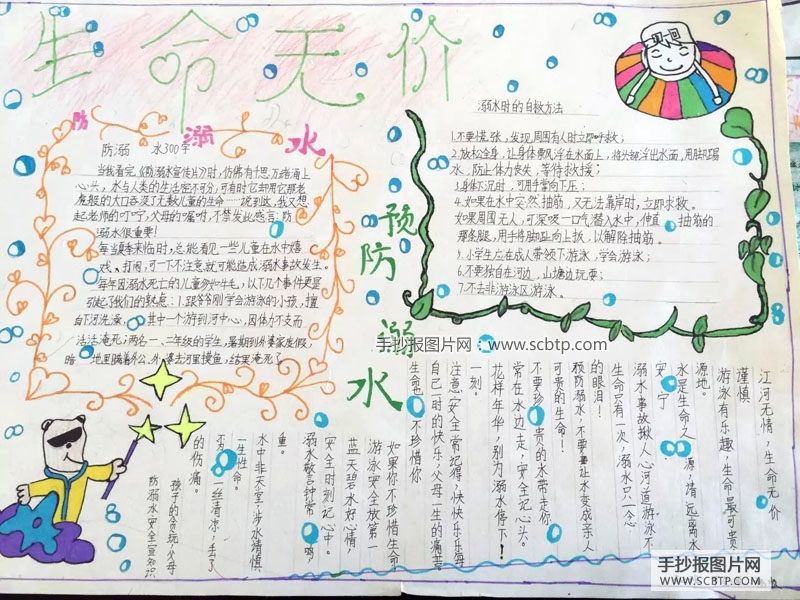 生命无价
防溺水
防溺 水300字
当我看完《防溺水宣传片》时,仿佛有千思万绪涌上
心头,水与人类的生活密不可分,可有时它却用它那老
虎般的大口吞没了无数儿童的生命一说到这,我又想
起老师的叮咛,父母的嘱咐,不禁发出感言:防
溺水很重要!
每当夏季来临时,总能看见一些儿童在水中嬉
戏、打闹,可一下不注意就可能造成溺水事故发生。
每年因溺水死亡的儿童多如牛毛,以下几个事件更是
引起了我们的疑惑:1.跟爷爷刚学会游泳的小孩,擅
自下河洗澡,其中一个游到河中心,因体力不支而
淹死;两名一、二年级的学生,暑期到外婆家度假,
地里瞒着外公、外婆去河里摸鱼,结果淹死了
预防溺水
溺水时的自救方法
1.不要慌张,发现周围有人时立即呼救;
2.放松全身,让身体飘浮在水面上,将头部浮出水面,用脚踢
水,防止体力丧失,等待救援;
3.身体下沉时,可用手掌向下压;
4.如果在水中突然抽筋,又无法靠岸时,立即求救。
如果周围无人,可深吸一口气潜入水中,伸直抽筋的
那条腿,用手将脚趾向上扳,以解除抽筋。
5.小学生应在成人带领下游泳,学会游泳;
6.不要独自在河边、山塘边玩耍;
7.不去非游泳区游泳。
手抄报图片网:www.scbtp.com
江河无情,生命无价
游泳有乐趣,生命最可贵
谨慎
源地。
水是生命之源,请远离水
安宁
溺水事故揪人心河道游泳不
生命只有一次,溺水只一念
的眼泪!
预防溺水,不要让水变成亲人
可贵的生命!
不要珍贵的水带走你
常在水边走,安全记心头。
花样年华,别为溺水停下!
一刻。
注意安全常记得,快快乐乐每
自己一时的快乐,父母一生的痛苦
生命也不珍惜你
如果你不珍惜生命
游泳安全放第一
蓝天碧水好心情,
安全时刻记心中。
溺水敬言钟常鸣,
重。
水中非天堂,涉水请慎
一生性命。
为一丝清凉,去了
的伤痛。
孩子的贪玩,父母
防溺水安全宣知识
手抄报图片网
WWW.SCBTP.COM